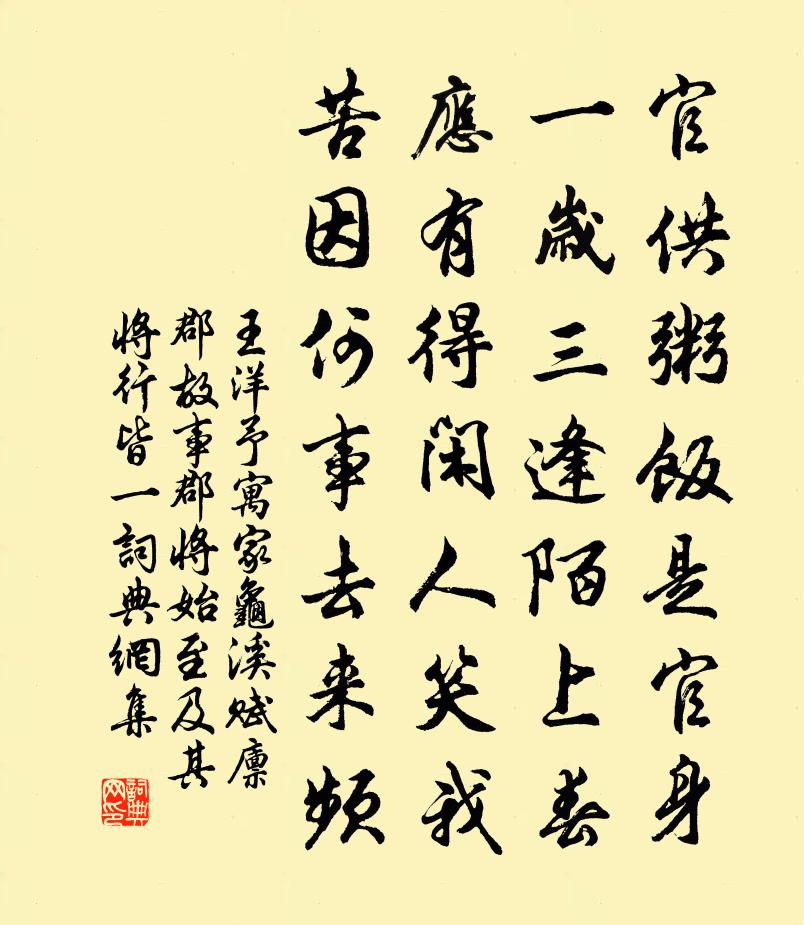 官供粥飯是官身
一歲三逢陌上春
應有得閑人笑我
苦因何事去来頻
王洋予寓家龜溪賦廪
郡故事郡將始至及其
將行皆一詞典網集
詞典网印